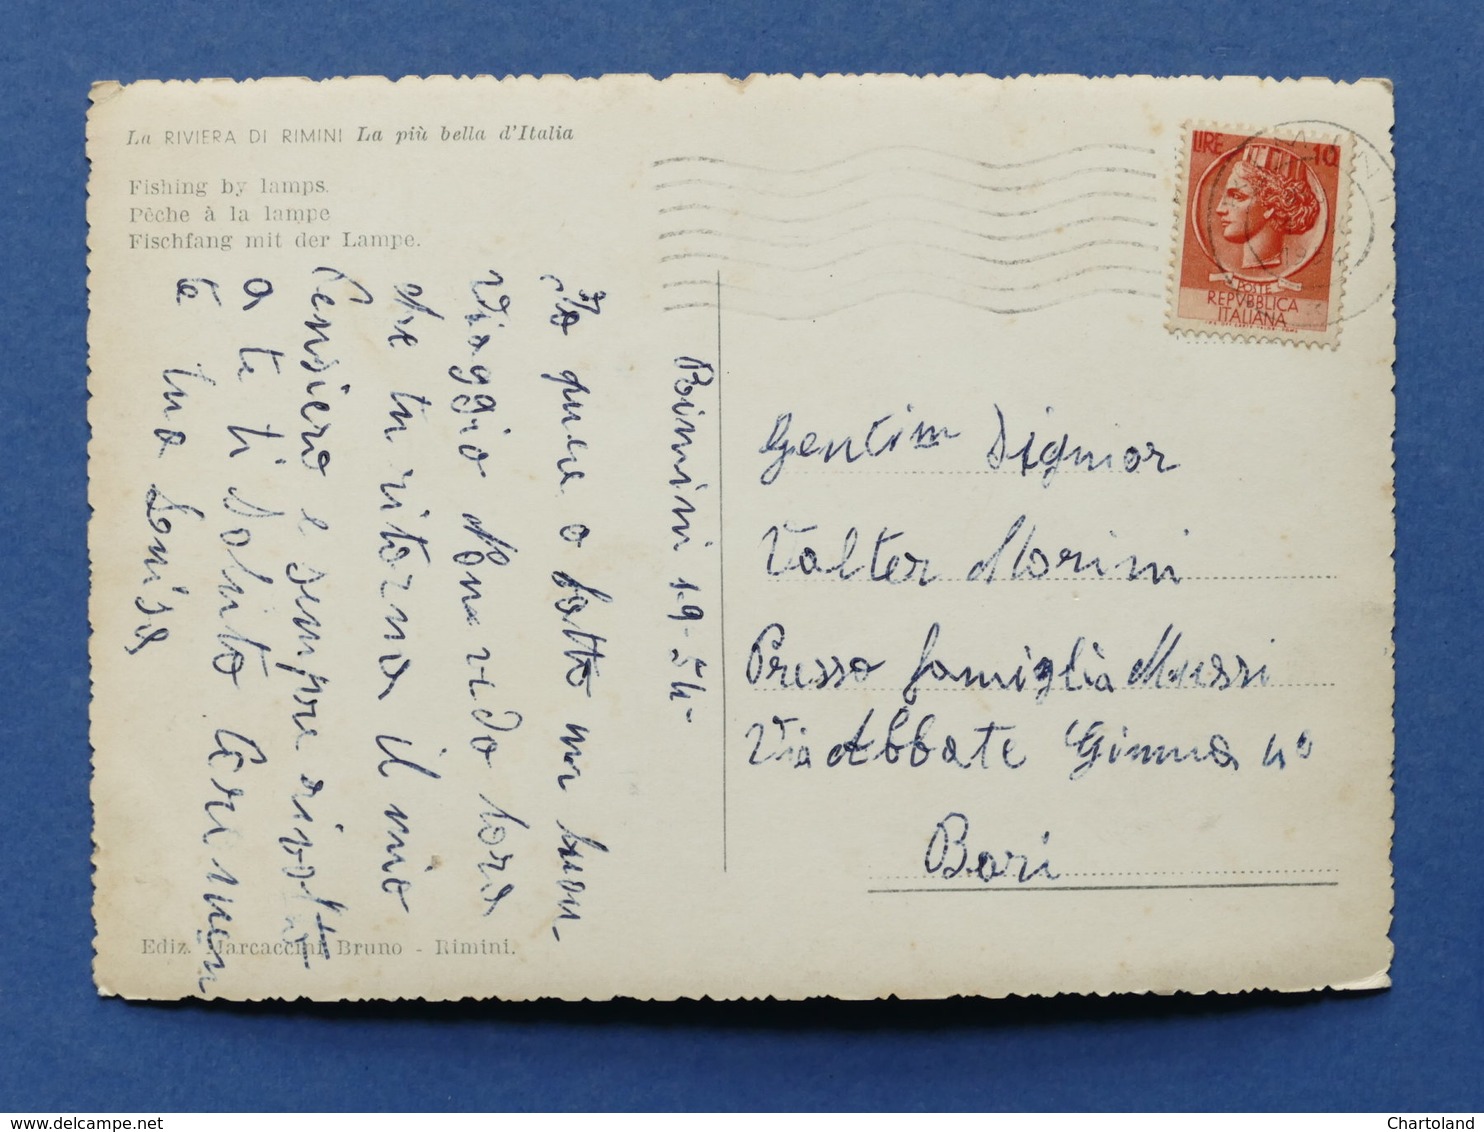 La RIVIERA DI RIMINI La più bella d'Italia
Fishing by lamps.
Pêche à la lampe
Fischfang mit der Lampe.
LIRE 10
POSTE
REPVBBLICA
ITALIANA
Rimini 1-9-54-
Io pure o fatto un buon
viaggio non vedo lora
che tu ritorna il mio
Pensiero e sempre rivolto
a te ti Saluto Caramen
te tua Luisa
Gentim Signor
Valter Morini
Presso famiglia Mussi
Via Abbate Gimma 40
Bari
Ediz. Marcaccini Bruno - Rimini.
delcampe.net
Chartoland